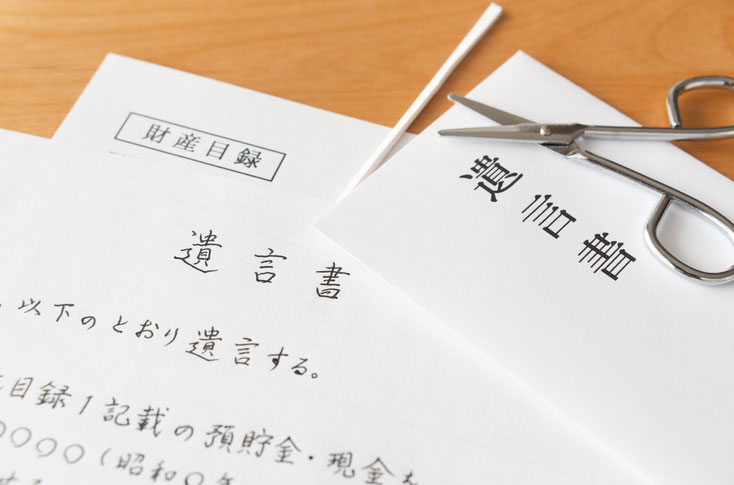 財産目録
遺言書
、以下のとおり遺言する。
目録1記載の預貯金・現金を
〇〇〇〇（昭和〇年
遺言書